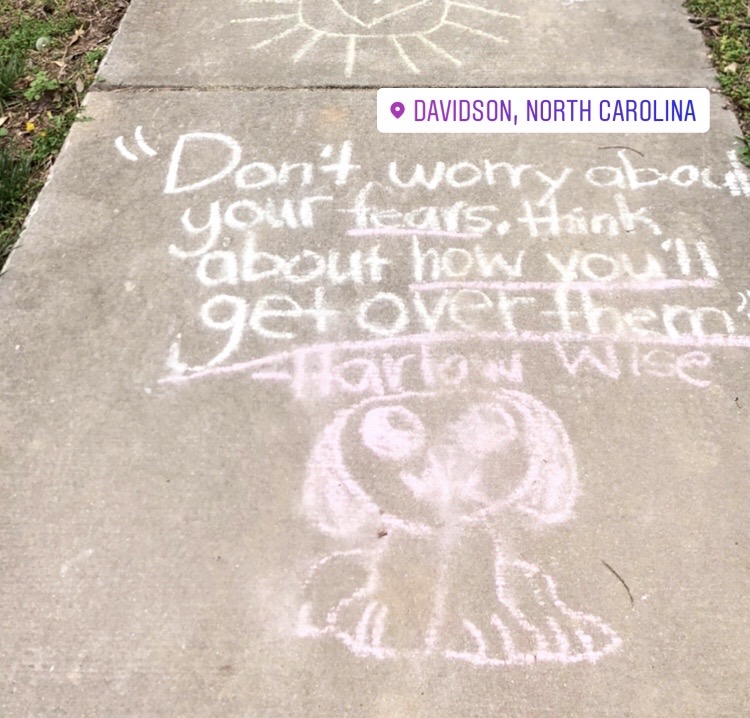 DAVIDSON, NORTH CAROLINA
"Don't worry about
your fears. think
about how you'll
get over them"
-Harlow Wise